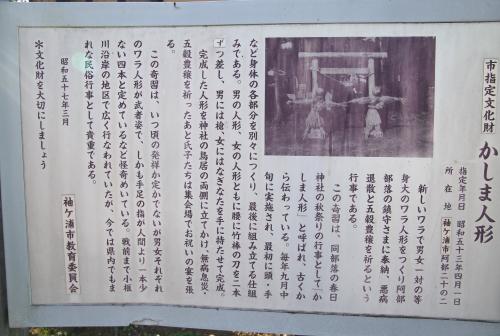 市指定文化財
かしま人形
指定年月日 昭和五十三年四月一日
所在地 袖ケ浦市阿部二十の二
新しいワラで男女一対の等
身大のワラ人形をつくり阿部
部落の鎮守さまに奉納、悪病
退散と五穀豊穣を祈るという
行事である。
この奇習は、岡部落の春日
神社の秋祭りの行事として「か
しま人形」と呼ばれ、古くか
ら伝わっている。毎年九月中
旬に実施され、最初に頭・手
など身体の各部分を別々につくり、最後に組み立てる仕組
みである。男の人形、女の人形ともに腰に竹棒の刀を二本
ずつ差し、男には槍、女にはなぎなたを手に持たせて完成。
完成した人形を神社の鳥居の両側に立てかけ、無病息災・
五穀豊穣を祈ったあと氏子たちは集会場でお祝いの宴を張
る。
この奇習は、いつ頃の発祥か定かでないが男女それぞれ
のワラ人形が武者姿で、しかも手足の指が人間より一本少
ない四本と定めているなど怪奇めいている。戦前まで小櫃
川沿岸の地区で広く行なわれていたが、今では県内でもま
れな民俗行事として貴重である。
昭和五十七年三月
袖ケ浦市教育委員会
＊文化財を大切にしましょう